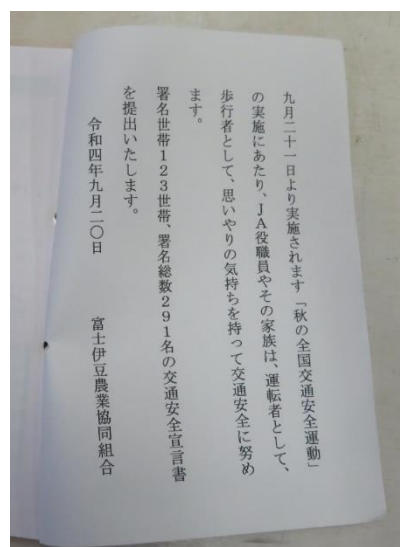 九月二十一日より実施されます「秋の全国交通安全運動」
の実施にあたり、JA役職員やその家族は、運転者として、
歩行者として、思いやりの気持ちを持って交通安全に努め
ます。
署名世帯123世帯、署名総数291名の交通安全宣言書
を提出いたします。
令和四年九月二〇日
富士伊豆農業協同組合